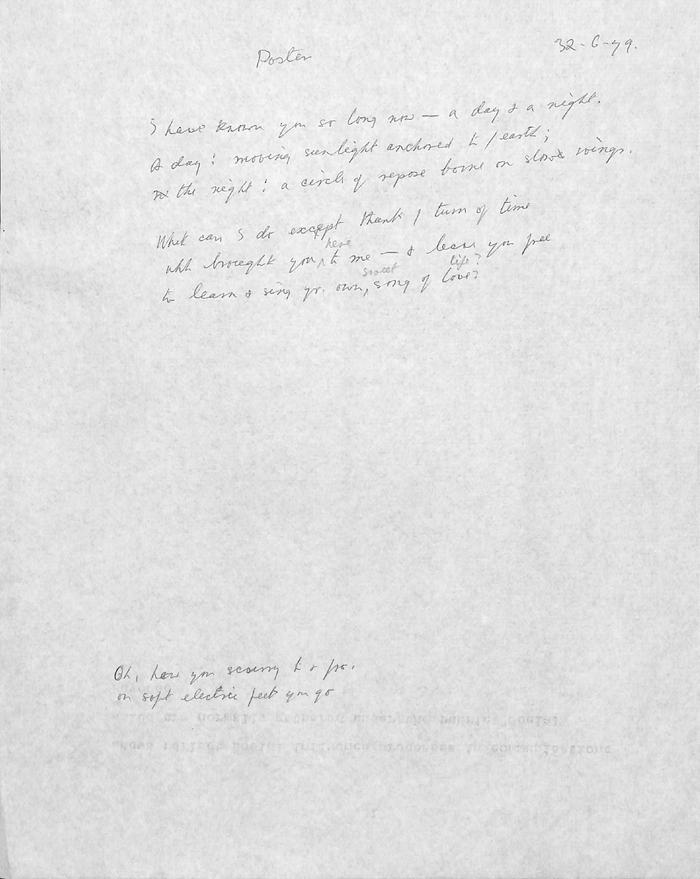 Poster
32-6-79.
I have known you so long now — a day & a night.
A day : moving sunlight anchored to / earth;
the night : a circle of repose borne on slow wings.
What can I do except thank / turn of time
wh brought you here to me — & leave you free
to learn & sing yr. own, sweet song of love? life?
Oh, here you scurry to & fro.
on soft electric feet you go